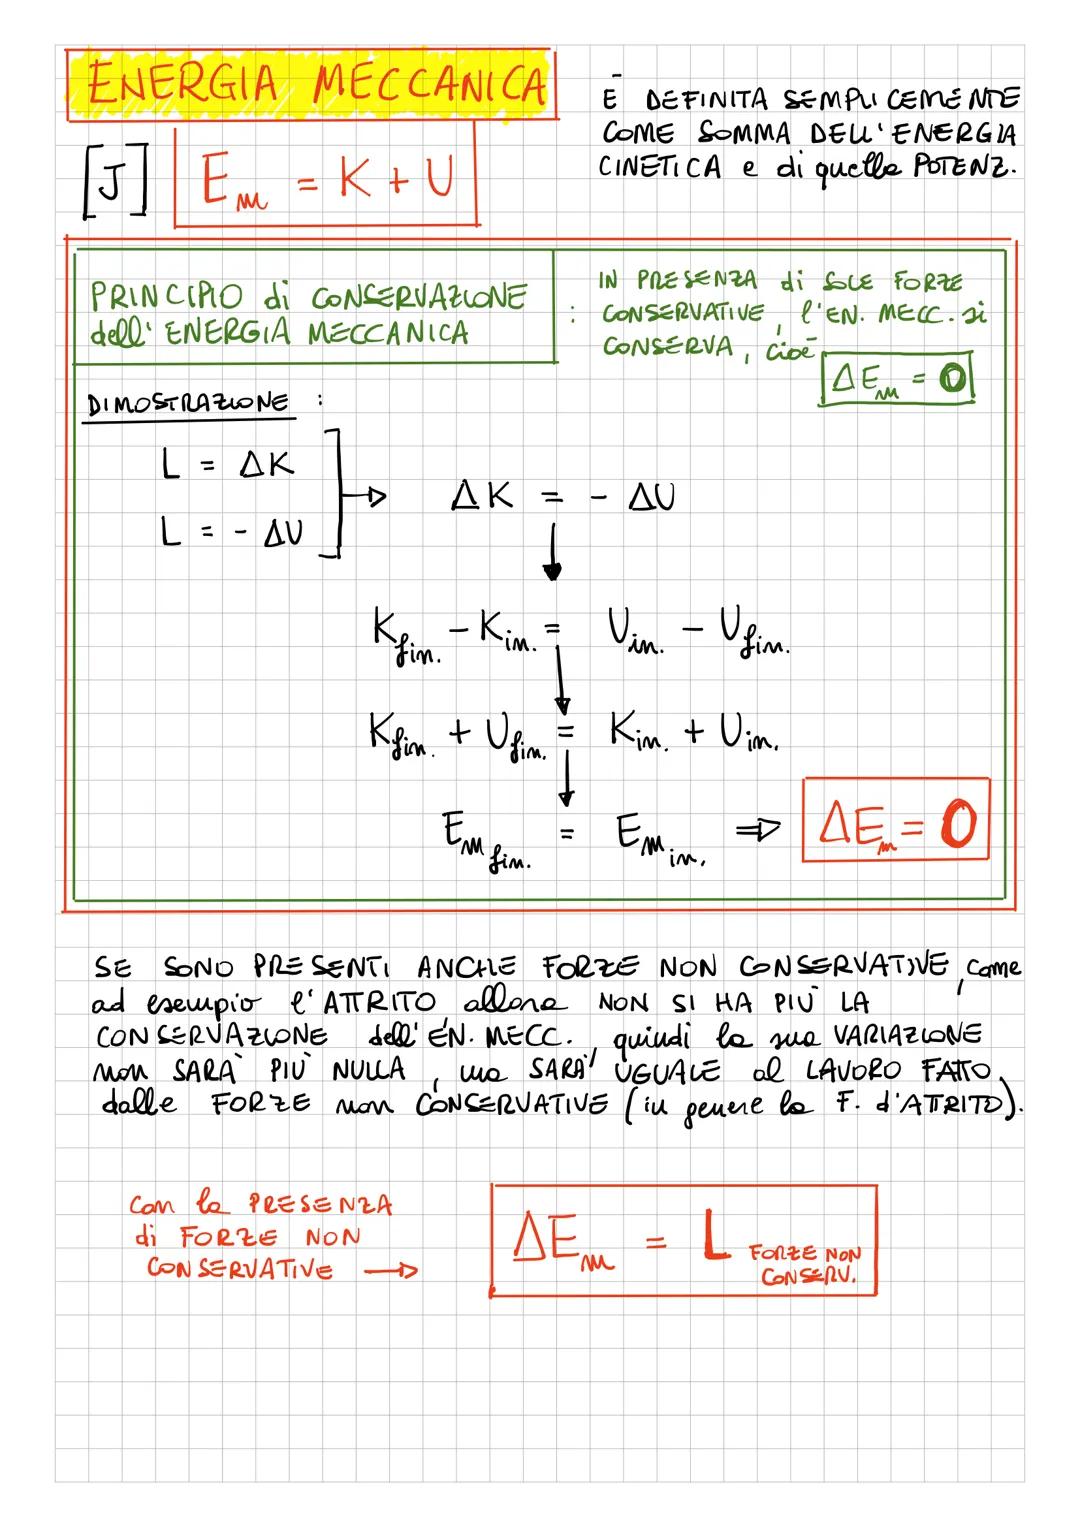 ENERGIA MECCANICA
È DEFINITA SEMPLICEMENTE
COME SOMMA DELL'ENERGIA
CINETICA e di quella POTENZ.
[J] Em = K + U
PRINCIPIO di CONSERVAZIONE
dell' ENERGIA MECCANICA
: IN PRESENZA di SOLE FORZE
CONSERVATIVE, l'EN. MECC. si
CONSERVA, cioè
ΔEm = 0
DIMOSTRAZIONE :
L = ΔK
L = - ΔU
ΔK = - ΔU
Kfin. - Kin. = Uin. - Ufin.
Kfin. + Ufin. = Kin. + Uin.
Em fin. = Em in. ⇒ ΔEm = 0
SE SONO PRESENTI ANCHE FORZE NON CONSERVATIVE, come
ad esempio l'ATTRITO, allora NON SI HA PIÙ LA
CONSERVAZIONE dell' EN. MECC., quindi la sua VARIAZIONE
non SARÀ PIÙ NULLA, ma SARÀ UGUALE al LAVORO FATTO
dalle FORZE non CONSERVATIVE (in genere la F. d'ATTRITO).
Con la PRESENZA
di FORZE NON
CONSERVATIVE →
ΔEm = L FORZE NON
CONSERV.